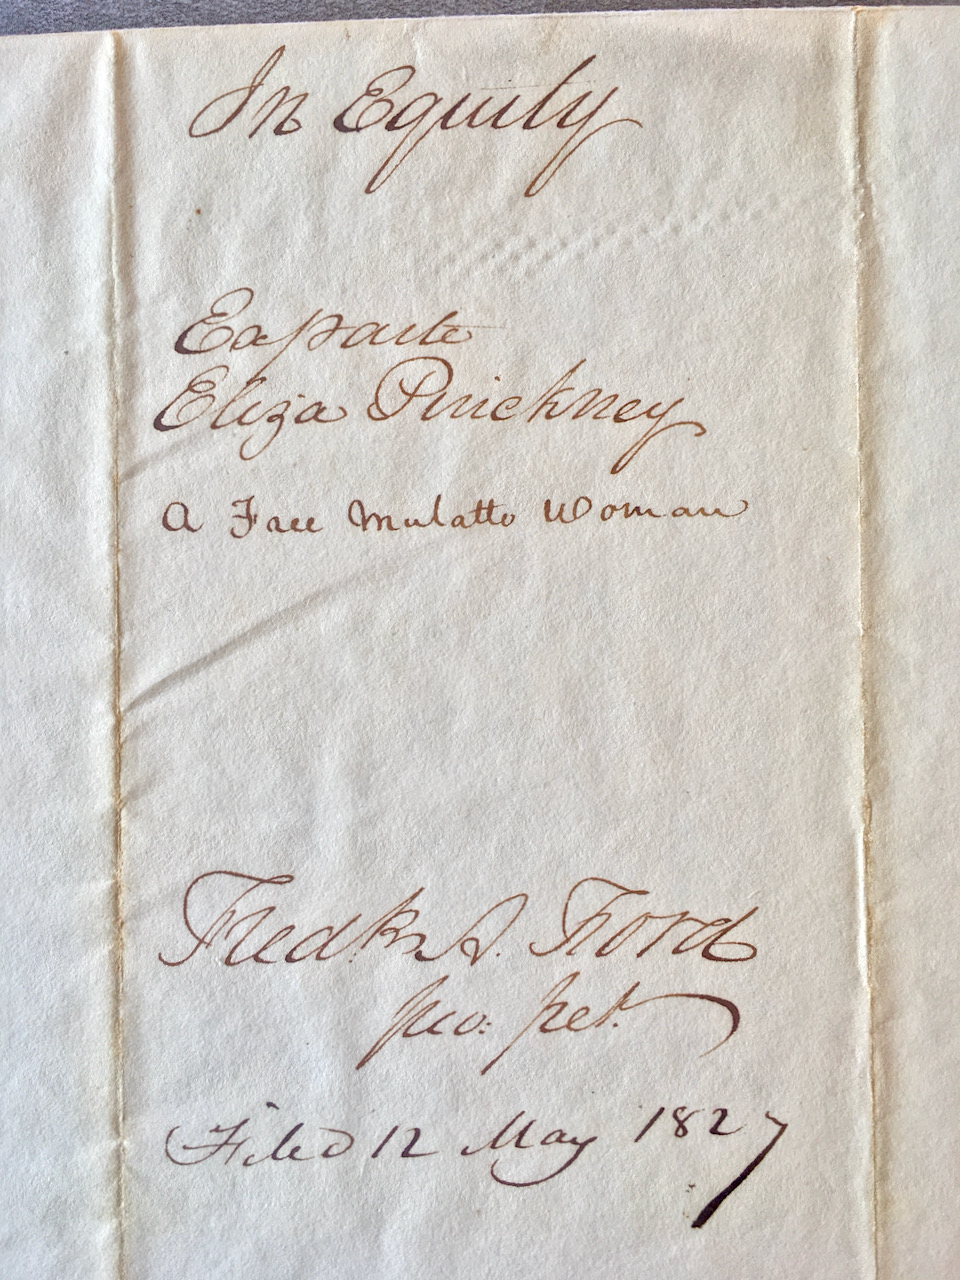 In Equity
Exparte
Eliza Pinckney
A Free Mulatto Woman
Fredk. A. Ford
pro: pet.
Filed 12 May 1827